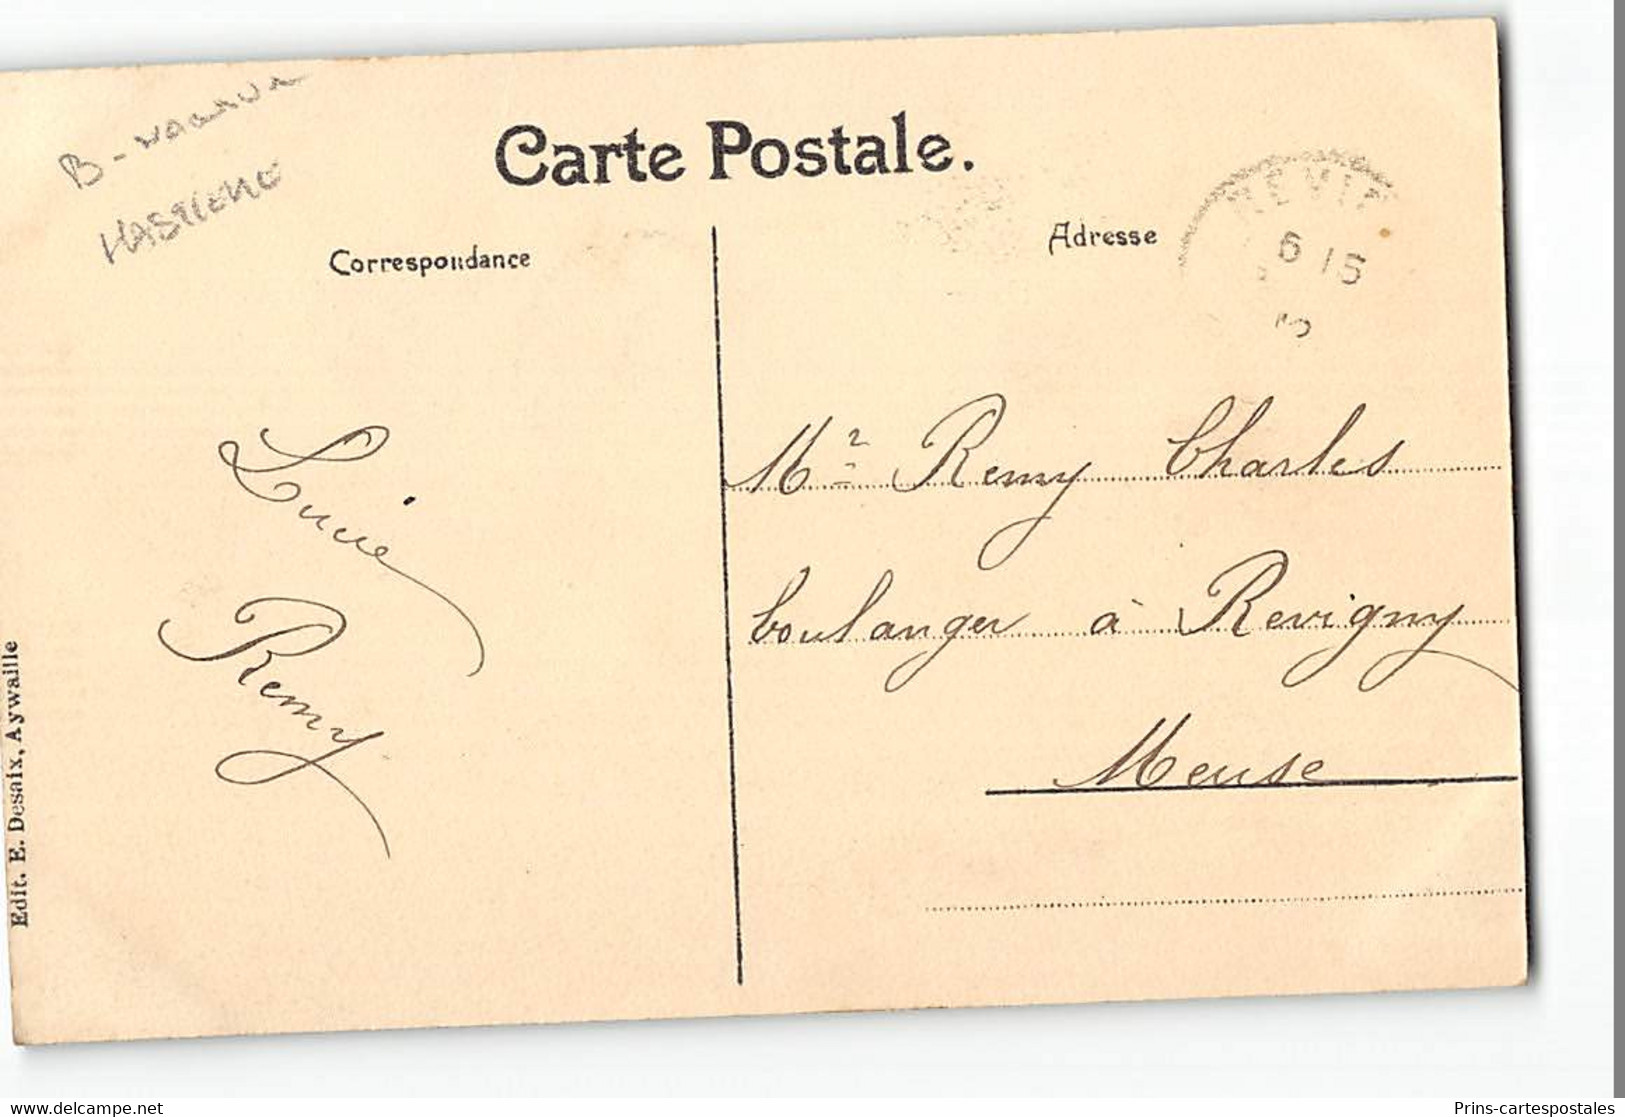 Carte Postale.
Correspondance
Adresse
6 15
Lucie
Remy
Mr Remy Charles
boulanger à Revigny
Meuse
Edit. E. Desaix, Aywaille
www.delcampe.net
Prins-cartespostales